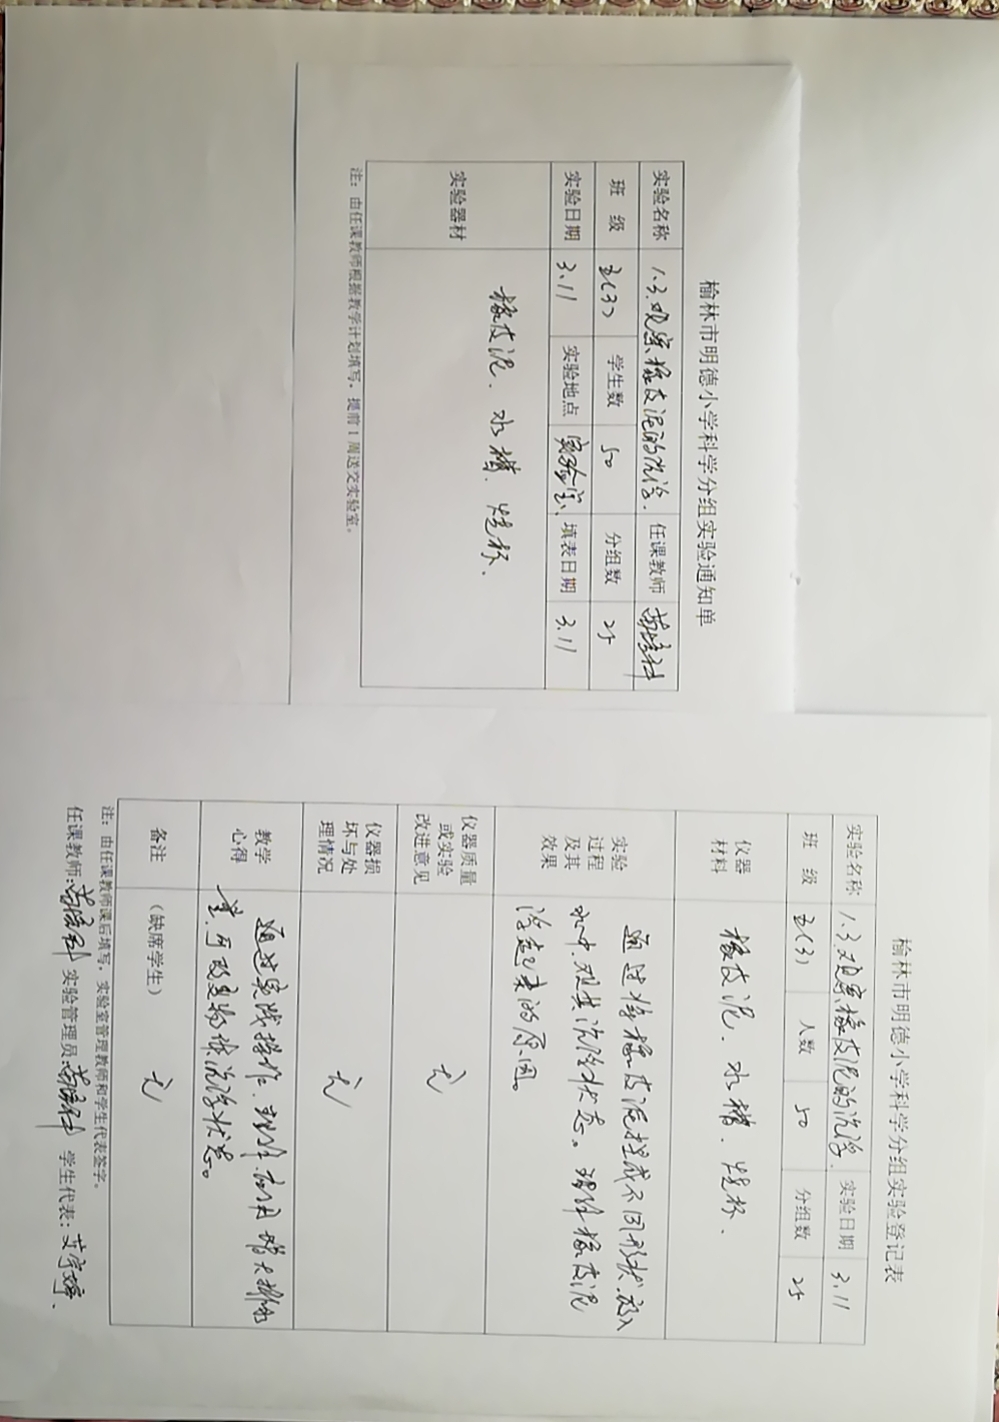 榆林市明德小学科学分组实验通知单
实验名称 1.3.观察橡皮泥的沉浮. 任课教师
班 级 五(3) 学生数 50 分组数 25
实验日期 3.11 实验地点 实验室、 填表日期 3.11
实验器材 橡皮泥、水槽、烧杯、
注：由任课教师根据教学计划填写，提前1周送交实验室。
榆林市明德小学科学分组实验登记表
实验名称 1.3.观察橡皮泥的沉浮. 实验日期 3.11
班 级 五(3) 人数 50 分组数 25
仪器
材料
橡皮泥、水槽、烧杯、
实验
过程
及其
效果
通过将橡皮泥捏成不同形状,放入
水中,观其沉浮状态。理解橡皮泥
浮起来的原因。
仪器质量
或实验
改进意见
无
仪器损
坏与处
理情况
无
教学
心得
通过实践操作,理解,利用增大排水
量,可改变物体沉浮状态。
备注 （缺席学生） 无
注：由任课教师课后填写，实验室管理教师和学生代表签字。
任课教师: 实验管理员: 学生代表: 艾宇婷.